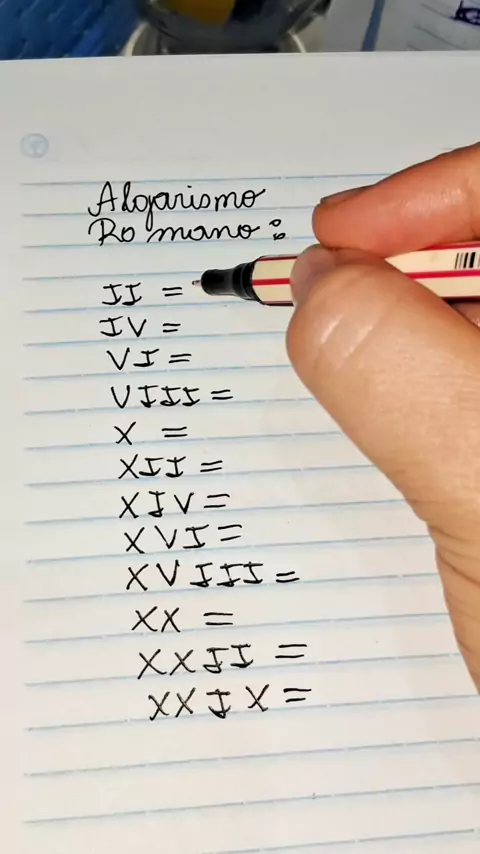 Algarismo
Romano:
II =
IV =
VI =
VIII =
X =
XII =
XIV =
XVI =
XVIII =
XX =
XXII =
XXIX =